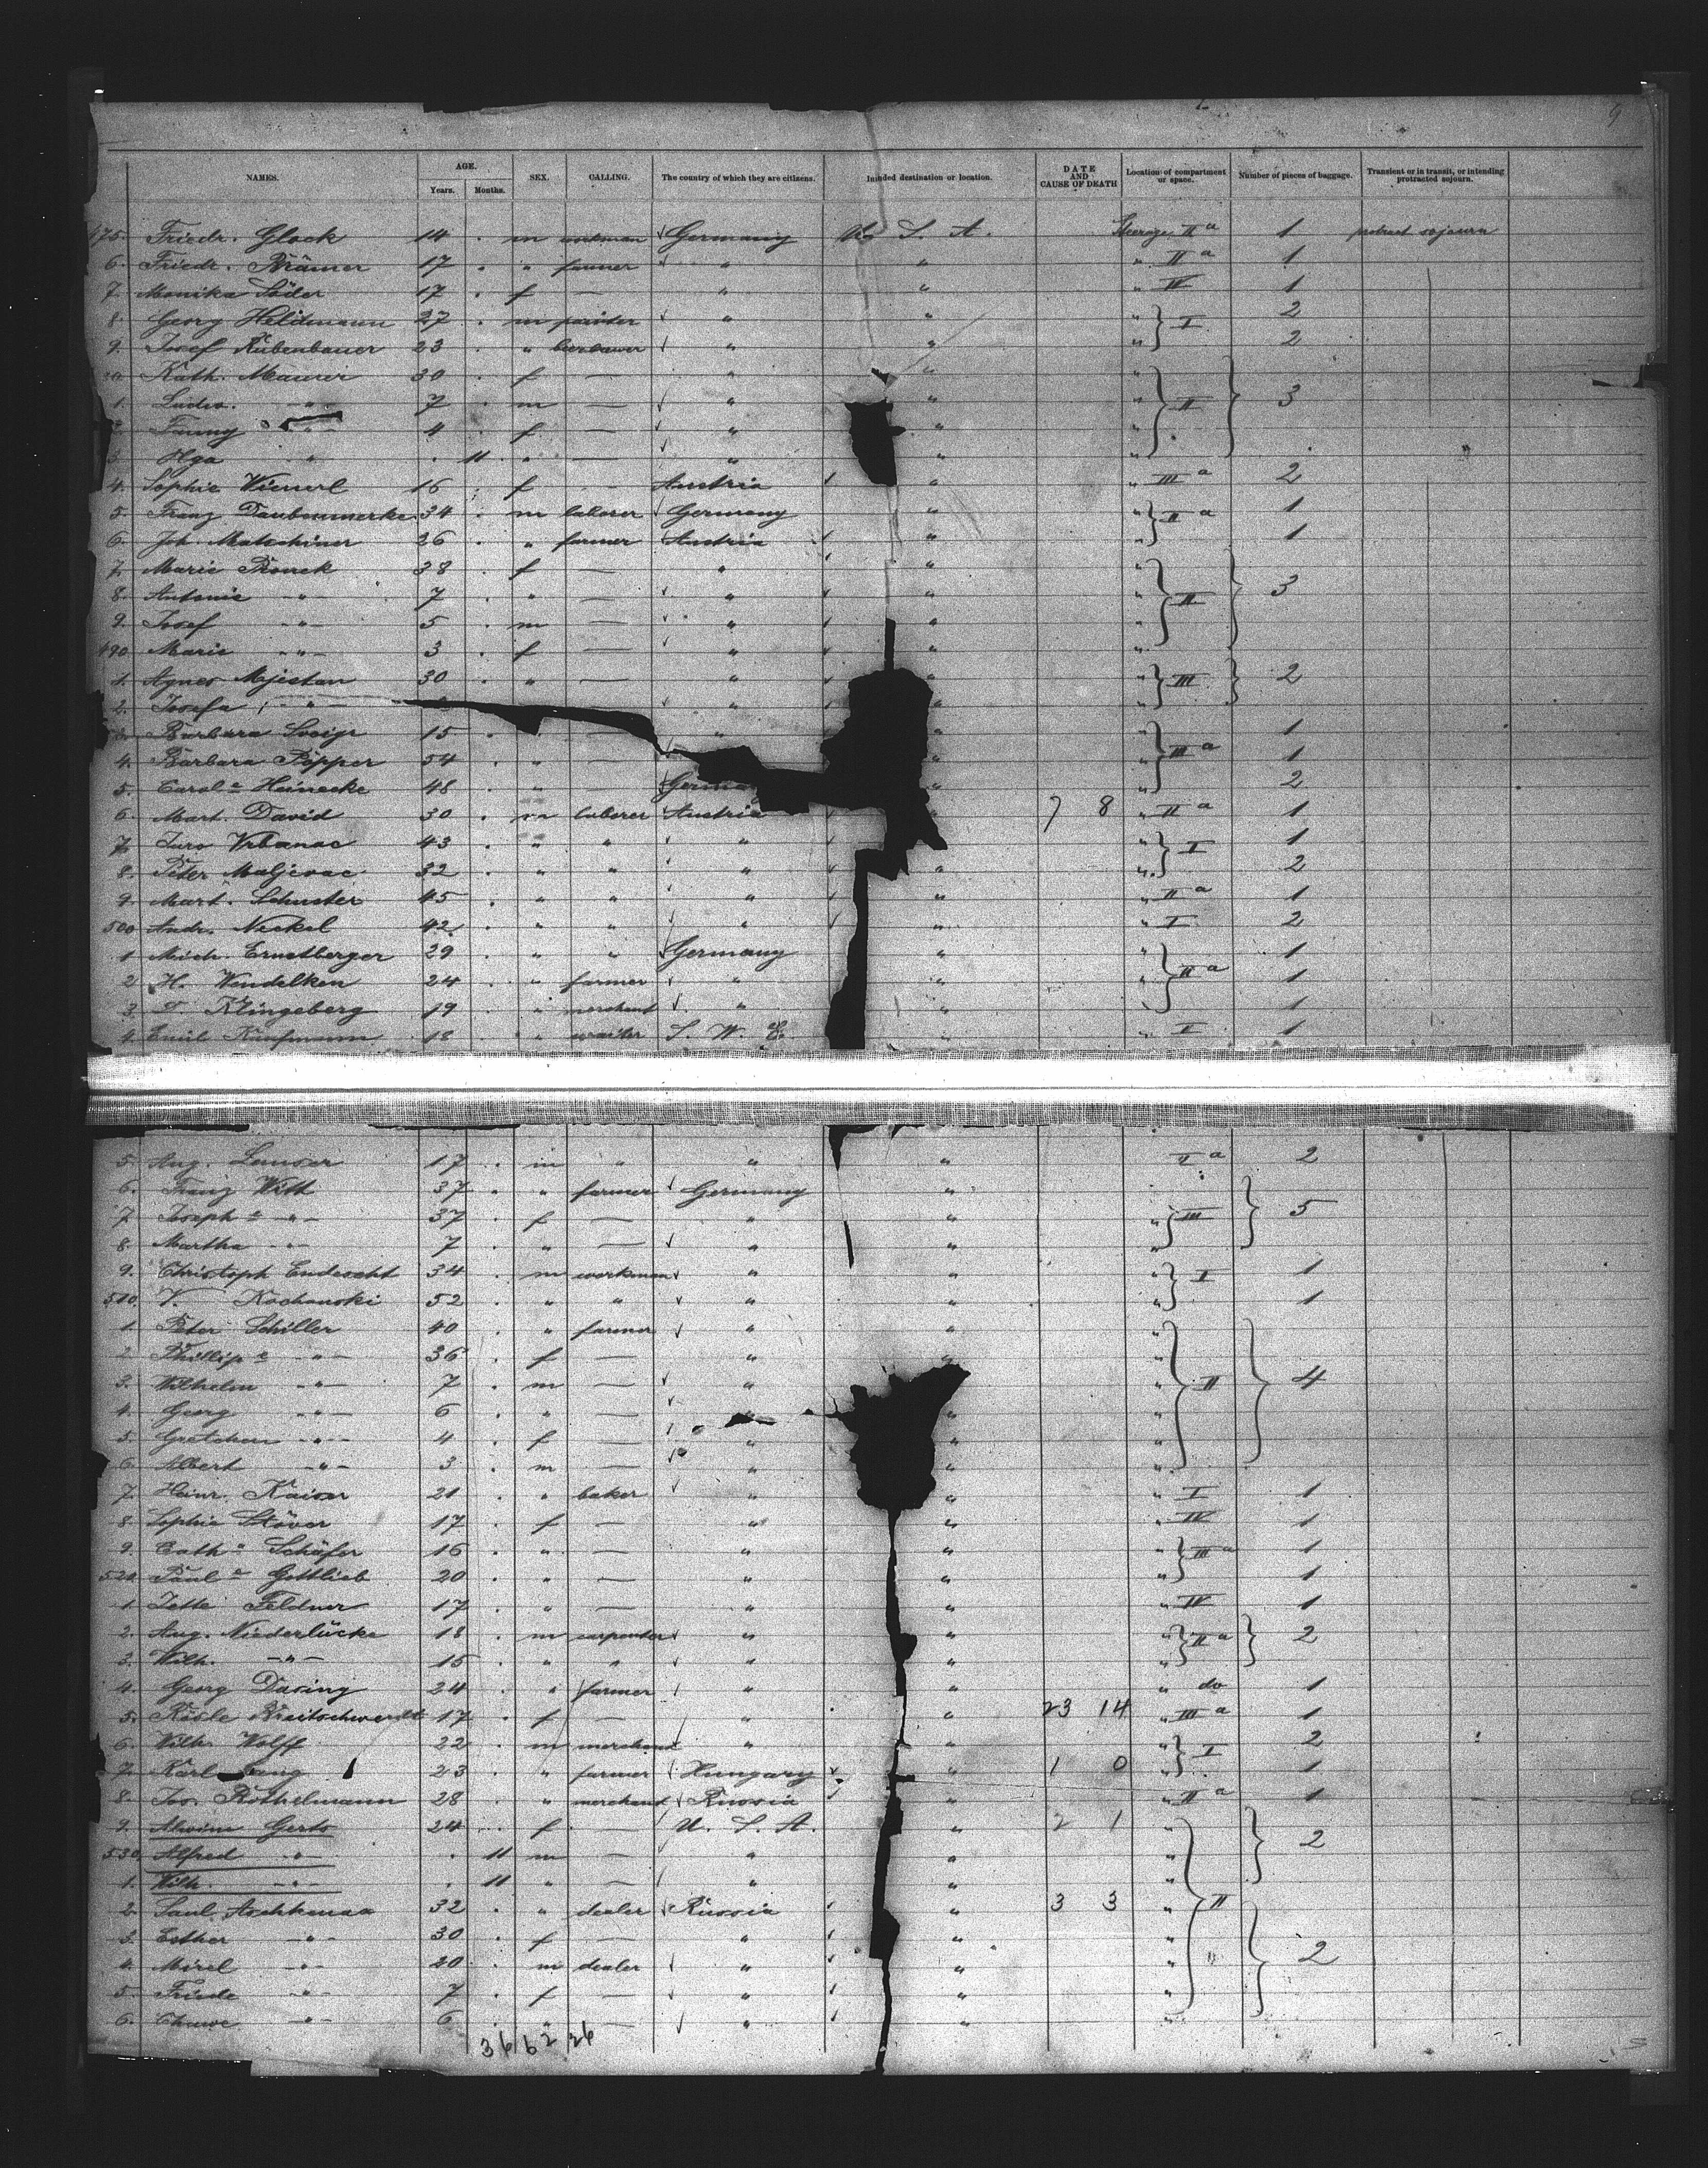 9
NAMES. AGE. Years. Months. SEX. CALLING. The country of which they are citizens. Intended destination or location. DATE AND CAUSE OF DEATH Location of compartment or space. Number of pieces of baggage. Transient or in transit, or intending protracted sojourn.
475. Friedr. Glock 14 . m workman Germany U. S. A. Steerage II a 1 protract sojourn
6. Friedr. Krämer 17 . " farmer " " " II a 1
7. Monika Söder 17 . f — " " " IV 1
8. Georg Heldmann 27 . m painter " " " I 2
9. Josef Rubenbauer 23 . " " " " 2
Kath. Maurer 30 . f — " " "
1. Ludw. -"- 7 . m — " " " II 3
2. Fanny -"- 4 . f — " " "
3. Olga " . 11 " — " "
4. Sophie Wienerl 16 . f — Austria " " III a 2
5. Franz Daubenmerkl 34 . m laborer Germany " " II a 1
6. Joh. Matschiner 26 . " farmer Austria " " 1
7. Marie 38 . f — " " "
8. Antonie -"- 7 . " — " " " II 3
9. Josef -"- 5 . m — " " "
490. Marie -"- 3 . f — " " "
1. Agnes 30 . " — " " " III 2
2. Josefa -"- " "
Barbara 15 . — " " " III a 1
4. Barbara Pepper 54 . " — " " 1
5. Carol e Heinecke 48 . " — " " 2
6. Mart. David 30 . m laborer Austria " 7 8 " II a 1
7. Juro Vrbanac 43 . " " " " " I 1
8. Peter Maljevac 32 . " " " " " 2
9. Mart. Schuster 45 . " " " " " II a 1
500 Andr. Neckel 42 . " " " " " I 2
1 Mich. Ernstberger 29 . " " Germany " " II a 1
2 H. Wendelken 24 . " farmer " " " 1
3. D. Klingeberg 19 . " merchant " " " 1
4. Emil Kaufmann 18 . " waiter S. W. E. " " I 1
5. Aug. 17 . m " " " a 2
6. Franz Witt 37 . " farmer Germany "
7. Joseph e -"- 37 . f — " " " III 5
8. Martha -"- 7 . " — " " "
9. Christoph Endrocht 34 . m workman " " " I 1
510. V. Kochanski 52 . " " " " " 1
1. Peter Schiller 40 . " farmer " " "
2. Phillip e -"- 36 . f — " " "
3. Wilhelm -"- 7 . m — " " " II 4
4. Georg -"- 6 . " — " " "
5. Gretchen -"- 4 . f — " " "
6. Albert -"- 3 . m — " " "
7. Heinr. Kaiser 21 . " baker " " " I 1
8. Sophie Stöver 17 . f — " " " IV 1
9. Cath e Schäfer 16 . " — " " " III a 1
520. Paul e Gottlieb 20 . " — " " " 1
1. Jette Feldner 17 . " — " " " IV 1
2. Aug. Niederlücke 18 . m carpenter " " " II a 2
3. Wilh. -"- 15 . " " " " "
4. Georg Daring 24 . " farmer " " " do 1
5. Rösle Breitschwerdt 17 . f — " " 23 14 " III a 1
6. Wilh. Wolff 22 . m merchant " " " I 2
7. Karl 23 . " farmer Hungary " 1 0 " 1
8. Jos. Rothelmann 28 . " merchant Russia " " II a 1
9. Alwine Gerts 24 . f — U. S. A. " 2 1 " 2
530. Alfred -"- . 11 m — " " "
1. Wilh. -"- . 11 " — " " "
2. Saul Aschkenas 32 . " dealer Russia " 3 3 " II
3. Esther -"- 30 . f — " " "
4. Mirel -"- 20 . m dealer " " " " 2
5. Friede -"- 7 . f — " " "
6. Chawe -"- 6 . " — " " "
36 62 26